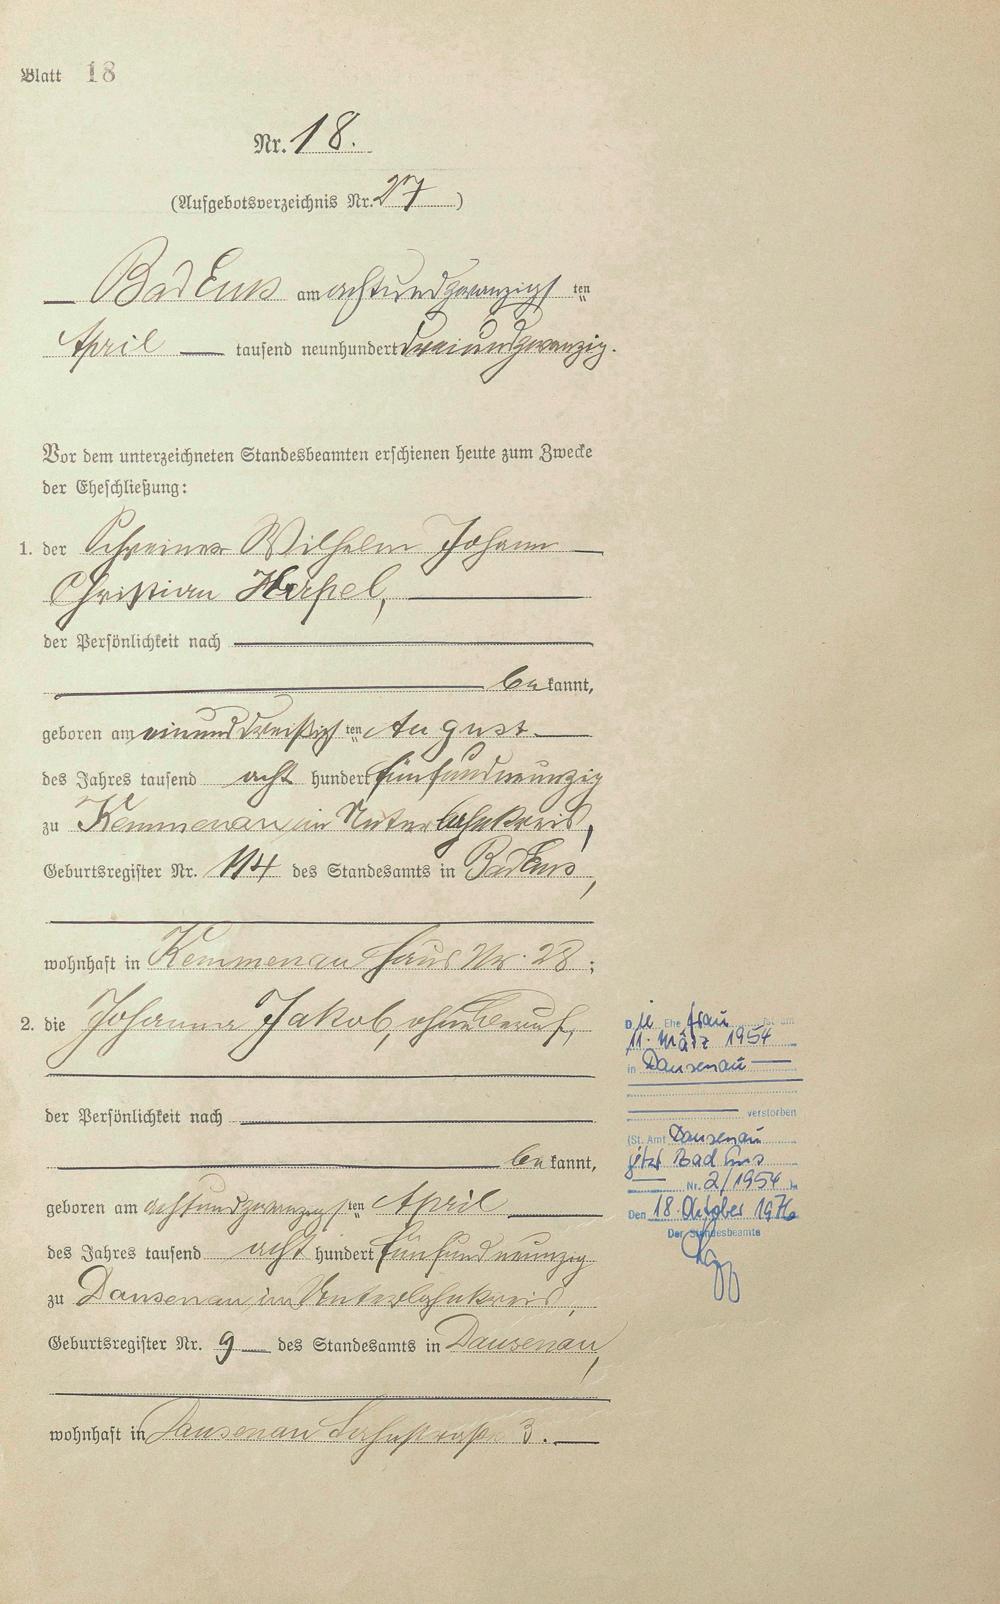 Blatt 18
Nr. 18.
(Aufgebotsverzeichnis Nr. 27)
Bad Ems am achtundzwanzigsten
April tausend neunhundert dreiundzwanzig.
Vor dem unterzeichneten Standesbeamten erschienen heute zum Zwecke
der Eheschließung:
1. der Schreiner Wilhelm Johann
Christian Herpel,
der Persönlichkeit nach
bekannt,
geboren am einunddreißigsten August
des Jahres tausend acht hundert fünfundneunzig
zu Kemmenau im Unterlahnkreis,
Geburtsregister Nr. 114 des Standesamts in Bad Ems,
wohnhaft in Kemmenau Haus Nr. 28;
2. die Johanna Jakob, ohne Beruf,
der Persönlichkeit nach
bekannt,
geboren am achtundzwanzigsten April
des Jahres tausend acht hundert fünfundneunzig
zu Dausenau im Unterlahnkreis,
Geburtsregister Nr. 9 des Standesamts in Dausenau,
wohnhaft in Dausenau Lahnstraße 3.
Die Ehefrau ist am
11. März 1954
in Dausenau
verstorben
(St. Amt Dausenau
jetzt Bad Ems
Nr. 2/1954
Den 18. Oktober 1976
Der Standesbeamte